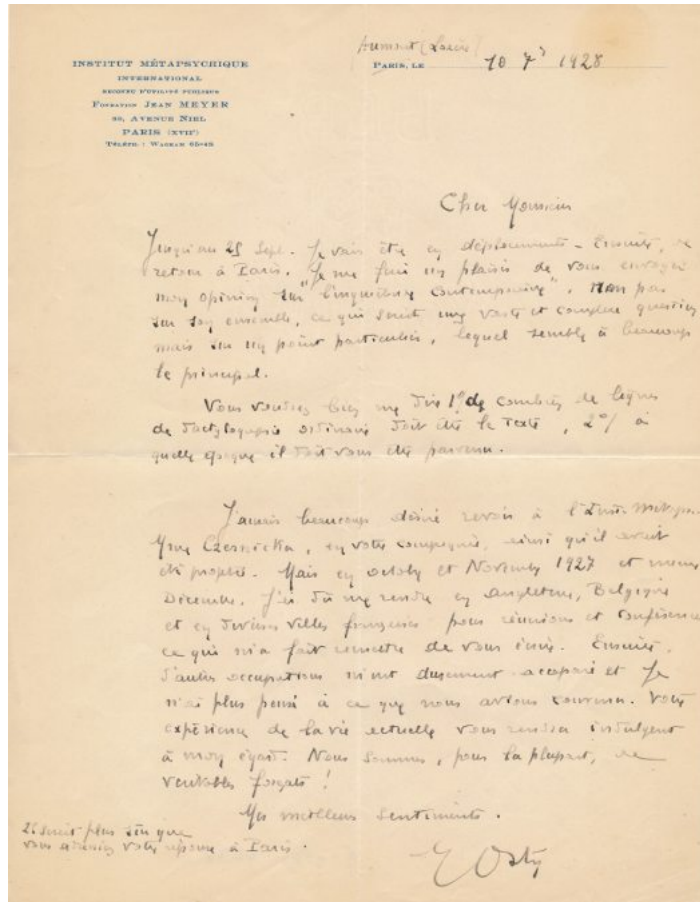 INSTITUT MÉTAPSYCHIQUE
INTERNATIONAL
RECONNU D'UTILITÉ PUBLIQUE
FONDATION JEAN MEYER
89, AVENUE NIEL
PARIS (XVIIe)
TÉLÉPH. : WAGRAM 65-48
PARIS, LE 10 7bre 1928
Cher Monsieur
Jusqu'au 25 Sept. Je vais être en déplacements - Ensuite, de
retour à Paris, Je me ferai un plaisir de vous envoyer
mon opinion sur "l'inquiétude contemporaine", non pas
sur son ensemble, ce qui serait une vaste et complexe question
mais sur un point particulier, lequel semble à beaucoup
le principal.
Vous voudrez bien me dire 1º/ de combien de lignes
de dactylographie ordinaire doit être le texte, 2º/ à
quelle époque il doit vous être parvenu.
J'aurais beaucoup désiré revoir à l'Inst. Métapsy.
Mme , en votre compagnie, ainsi qu'il avait
été projeté. Mais en octobre et Novembre 1927 et même
Décembre, J'ai dû me rendre en Angleterre, Belgique
et en diverses villes françaises pour réunions et conférences
ce qui m'a fait remettre de vous écrire. Ensuite,
d'autres occupations m'ont durement accaparé et Je
n'ai plus pensé à ce que nous avions convenu. Votre
expérience de la vie actuelle vous rendra indulgent
à mon égard. Nous sommes, pour la plupart, de
véritables forçats !
Mes meilleurs sentiments.
E Osty
Il serait plus sûr que
vous adressiez votre réponse à Paris.